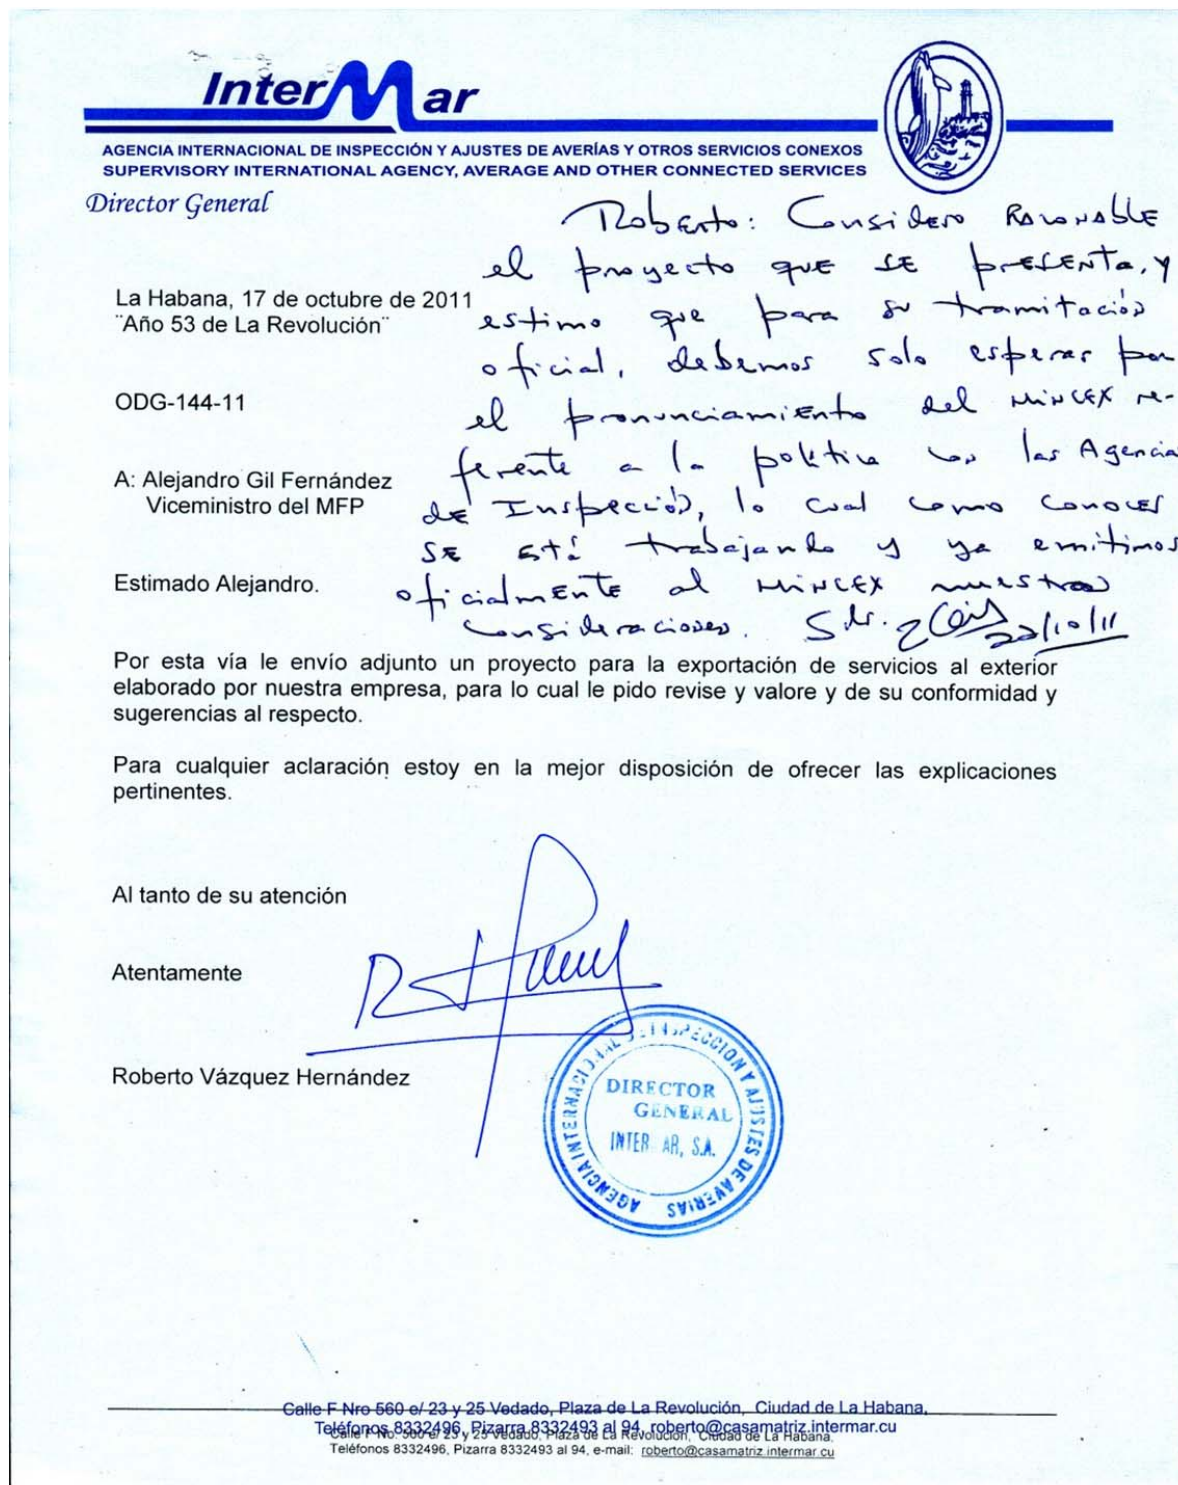 InterMar
AGENCIA INTERNACIONAL DE INSPECCIÓN Y AJUSTES DE AVERÍAS Y OTROS SERVICIOS CONEXOS
SUPERVISORY INTERNATIONAL AGENCY, AVERAGE AND OTHER CONNECTED SERVICES
Director General
Roberto: Considero RAZONABLE
el proyecto que SE PRESENTA, y
estimo que para su tramitación
oficial, debemos solo esperar por
el pronunciamiento del MINCEX re-
ferente a la política con las Agencia
DE Inspección, lo cual como conoces
SE está trabajando y ya emitimos
oficialmente al MINCEX nuestras
consideraciones.
La Habana, 17 de octubre de 2011
¨Año 53 de La Revolución¨
ODG-144-11
A: Alejandro Gil Fernández
Viceministro del MFP
Estimado Alejandro.
Por esta vía le envío adjunto un proyecto para la exportación de servicios al exterior
elaborado por nuestra empresa, para lo cual le pido revise y valore y de su conformidad y
sugerencias al respecto.
Para cualquier aclaración estoy en la mejor disposición de ofrecer las explicaciones
pertinentes.
Al tanto de su atención
Atentamente
Roberto Vázquez Hernández
AGENCIA INTERNACIONAL DE INSPECCION Y AJUSTES DE AVERIAS
DIRECTOR
GENERAL
INTER AR, S.A.
Calle F Nro 560 e/ 23 y 25 Vedado, Plaza de La Revolución, Ciudad de La Habana,
Teléfonos 8332496, Pizarra 8332493 al 94, roberto@casamatriz.intermar.cu
Calle F No. 560 e/ 23 y 25 Vedado, Plaza de La Revolución, Ciudad de La Habana,
Teléfonos 8332496, Pizarra 8332493 al 94, e-mail: roberto@casamatriz.intermar.cu